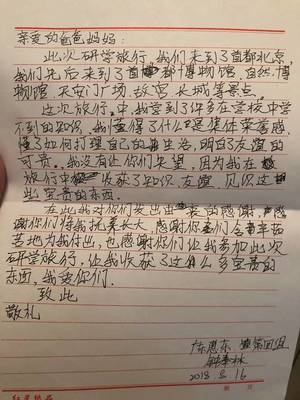 亲爱的爸爸妈妈:
此次研学旅行,我们来到了首都北京,
我们先后来到了首都博物馆,自然博
物馆,天安门广场,故宫,长城等景点。
这次旅行,中我学到了许多在学校中学
不到的知识,我懂得了什么是集体荣誉感,
懂了如何打理自己的生活,明白了友谊的
可贵。我没有让你们失望,因为我在
旅行中收获了知识,友谊,见识这
些宝贵的东西。
在此我对你们发出由衷的感谢,感
谢你们将我抚养长大,感谢你们含辛茹
苦地为我付出,也感谢你们让我参加此次
研学旅行,让我收获了这么多宝贵的
东西,我爱你们。
致此
敬礼
第四组
2018 5 16